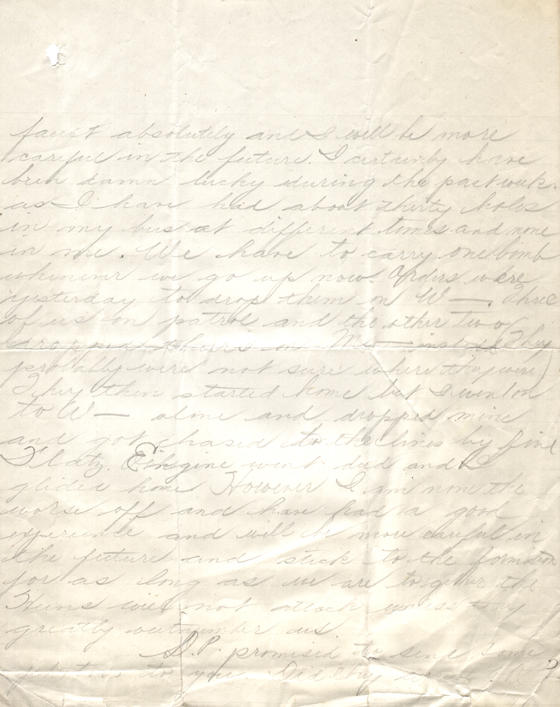 fault absolutely and I will be more
careful in the future. I certainly have
been damn lucky during the past week
as I have had about thirty holes
in my bus at different times and none
in me. We have to carry one bomb
whenever we go up now. Orders were
yesterday to drop them on W—. Three
of us on patrol and the other two
dropped theirs on M— instead They
probably were not sure where they were)
They then started home but I went on
to W— alone and dropped mine
and got chased to the lines by five
Flatz. Engine went dead and I
glided home However I am none the
worse off and have had a good
experience and will be more careful in
the future and stick to the formation
for as long as we are together the
Huns will not attack unless they
greatly outnumber us
D.P. promised to send some
to you. Did they